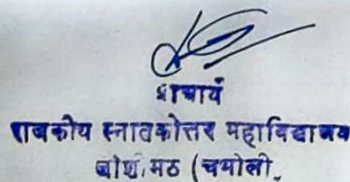 प्राचार्य
राजकीय स्नातकोत्तर महाविद्यालय
जोशीमठ (चमोली)